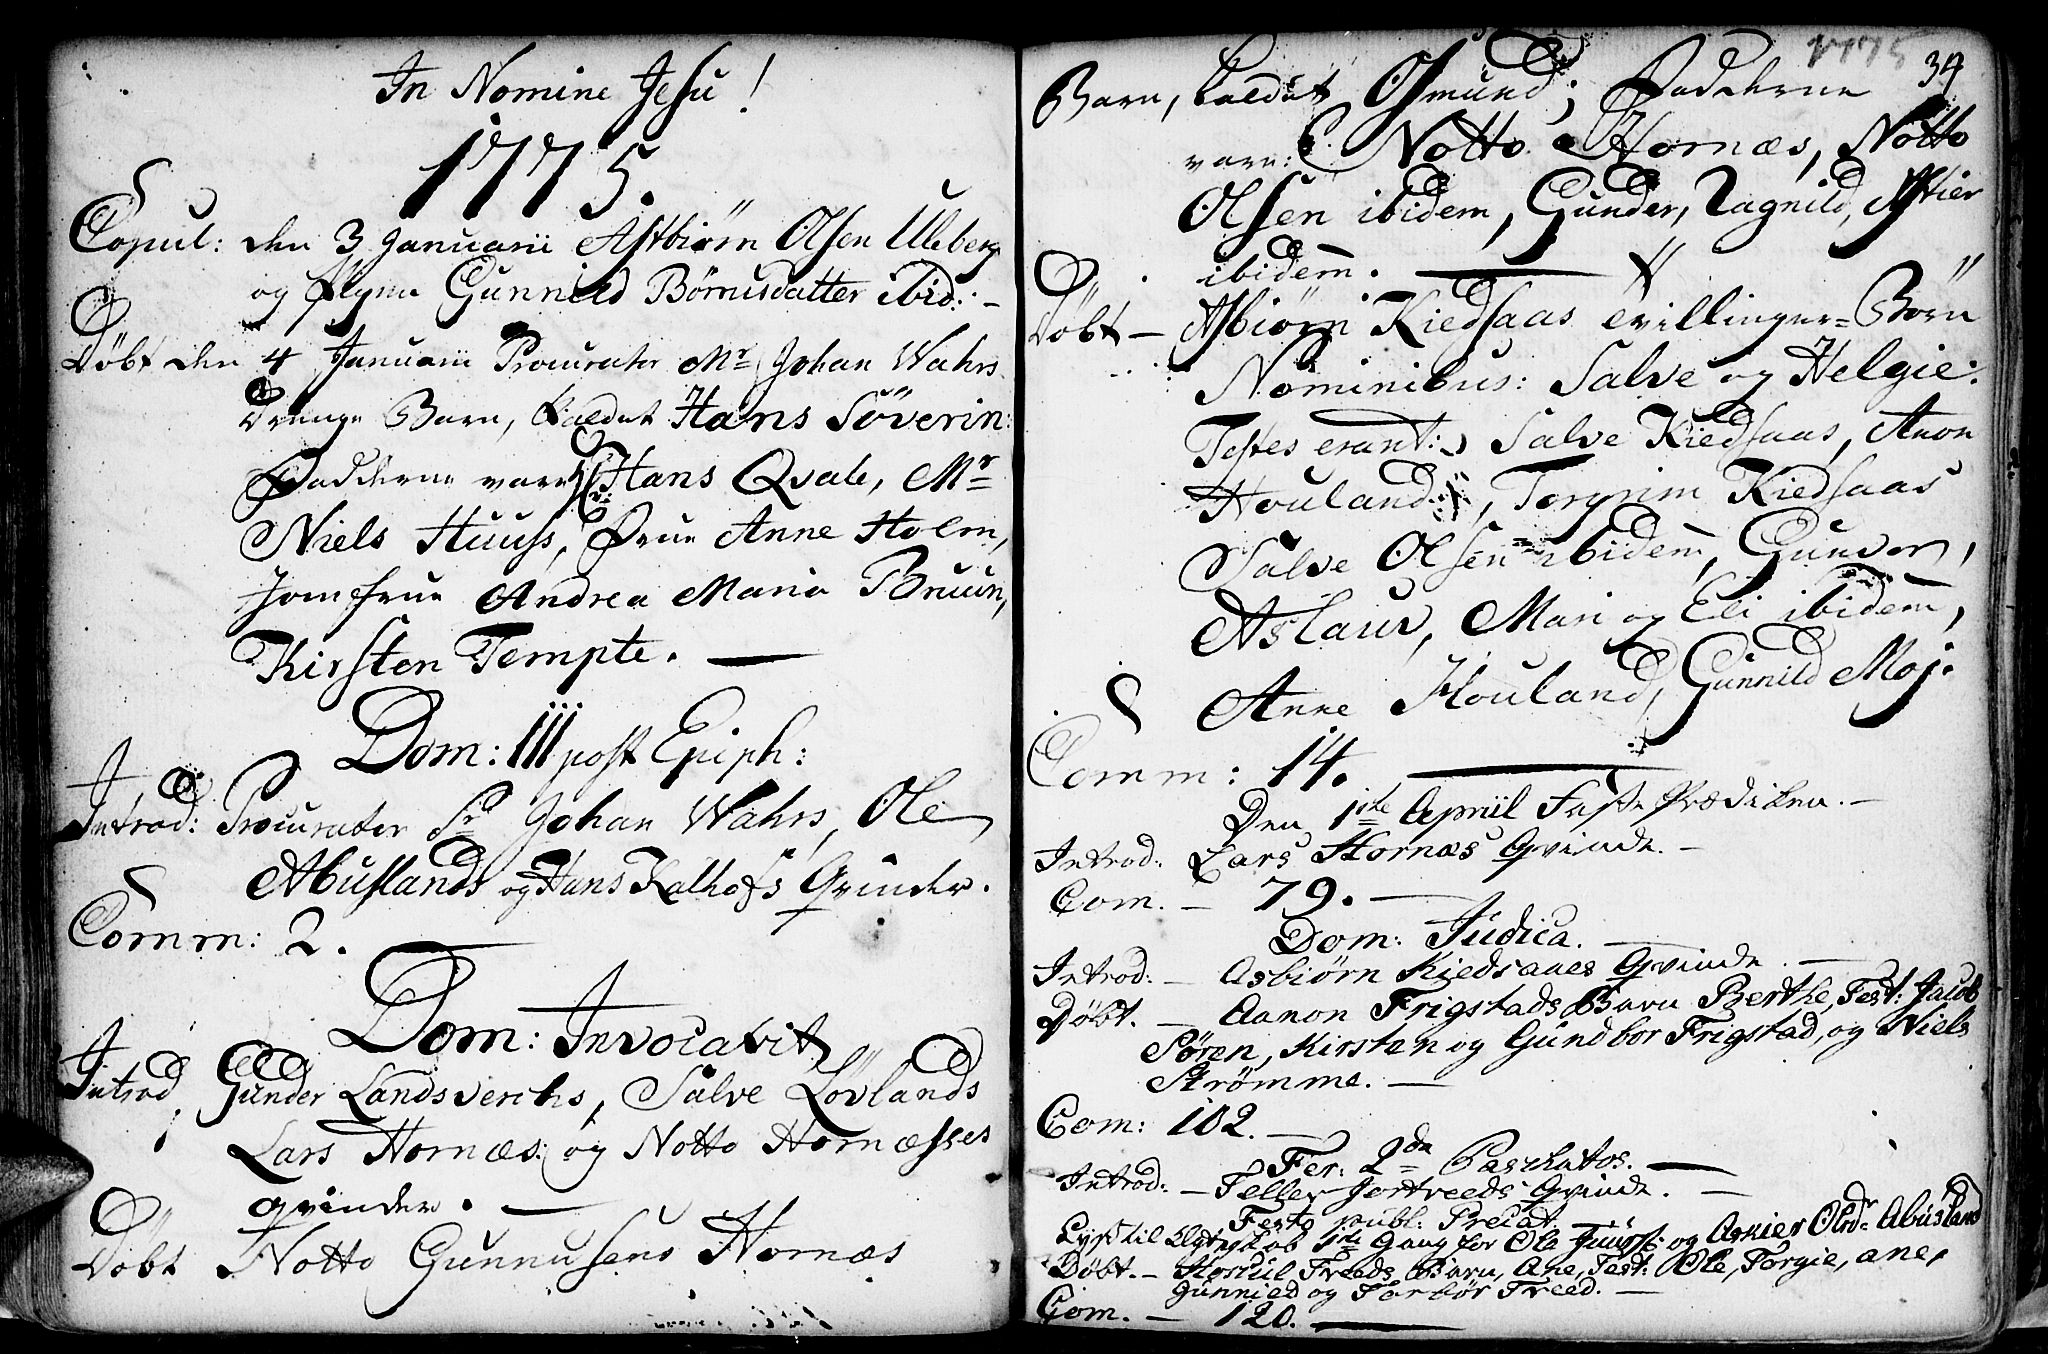 In Nomine Jesu!
1775.
Copul: den 3 Januarii Astbiörn Olsen Uleberg
og Pigen Gunnild Börnisdatter ibid: –
Döbt den 4 Januarii Procurator Mr Johan Wahrs
Drenge Barn, kaldet Hans Söverin:
Fadderne vare Hans Qvale, Mr
Niels Huuss, Frue Anne Holm,
Jomfrue Andrea Maria Bruun,
Kirsten Tempte. —
Dom: III post Epiph:
Introd: Procurator Sr Johan Wahrs, Ole
Abuslands og Hans Kalhofs Qvinder.
Comm: 2.
Dom: Invocavit
Introd: Gunder Landsverchs, Salve Lövlands
Lars Hornæs: og Notto Hornæsses
qvinder. —
Döbt Notto Gunnusens Hornæs
1775 34
Barn, kaldet Osmund; Fadderne
vare: Notto Hornæs, Notto
Olsen ibidem, Gunder, Ragnild, Astier
ibidem. —
Döbt – Asbiörn Kiedsaas tvillinger-Börn
Nominibus: Salve og Helgie:
Testes erant: Salve Kiedsaas, Anon
Houland, Torgrim Kiedsaas
Salve Olsen ibidem, Gunvor,
Aslaur, Mari og Eli ibidem,
Anne Houland, Gunnild Moj.
Comm: 14. —
Den 1ste April Faste Prædiken. –
Introd: Lars Hornæs Qvinde. –
Com. – 79. —
Dom: Judica. —
Introd: – Asbiörn Kiedsaaes Qvinde. —
Döbt. – Aanon Frigstads Barn Berthe, Test: Jacob
Sören, Kirsten og Gundbor Frigstad, og Niels
Strömme. —
Com: 102. —
Fer: 2da Paschatos. —
Introd: – Tellef Jortveeds Qvinde. –
Festo publ: Precat.
Lyst til Ægteskab 1ste Gang for Ole Tuurst: og Asnier Olsdr Abusland
Döbt. – Hoskul Freeds Barn, Ane, Test: Ole, Torgie, ane,
Gunnild og Torbör Freed. —
Com. – 120. —